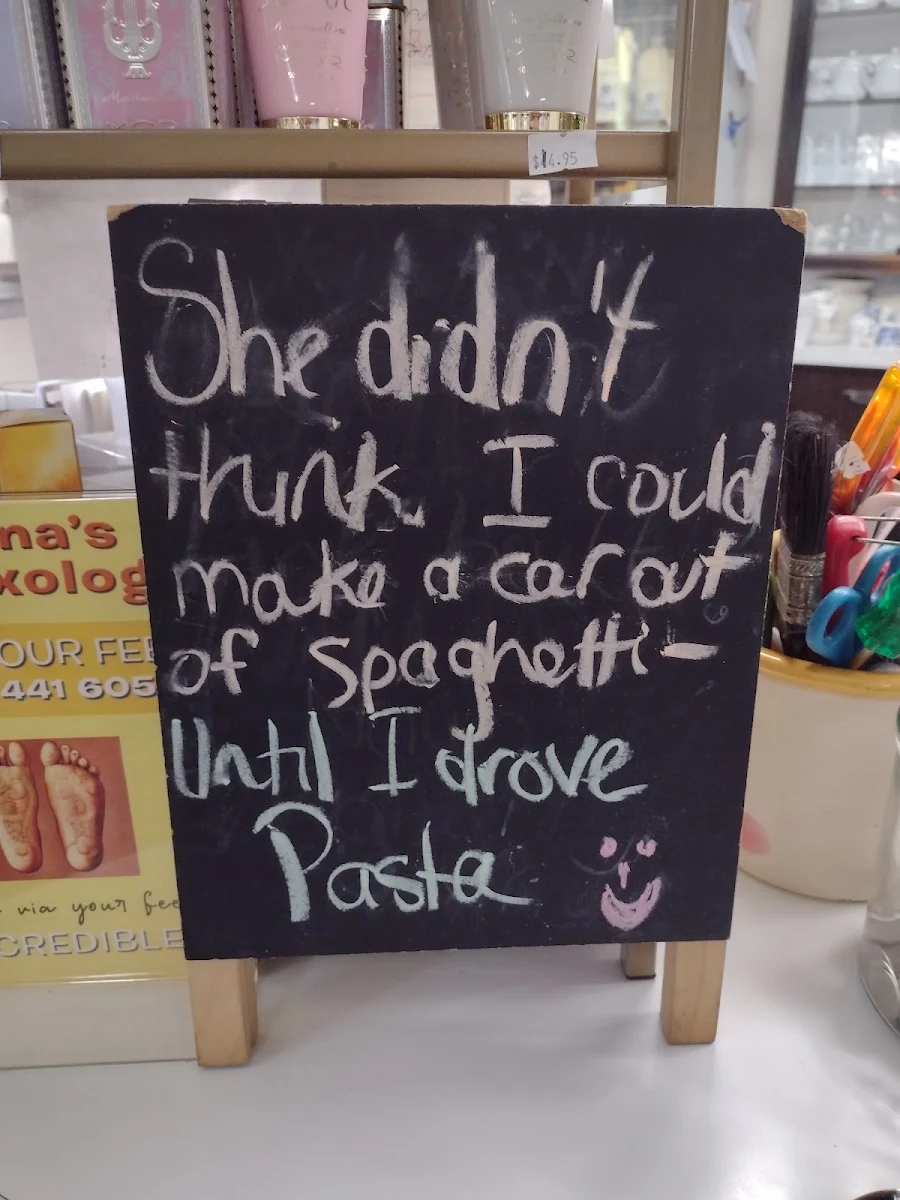 $14.95
She didn't
think I could
make a car out
of spaghetti-
Until I drove
Pasta
na's
xolog
OUR FEE
441 605
via your fee
CREDIBLE